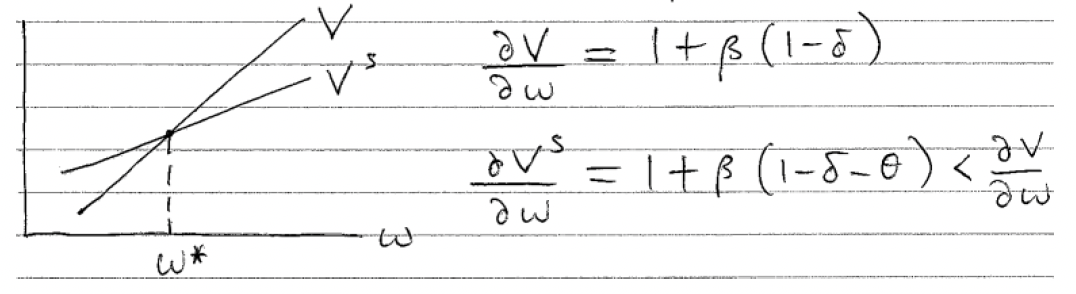 V
V^s
∂V/∂ω = 1 + β (1-δ)
∂V^s/∂ω = 1 + β (1-δ-θ) < ∂V/∂ω
ω
ω*